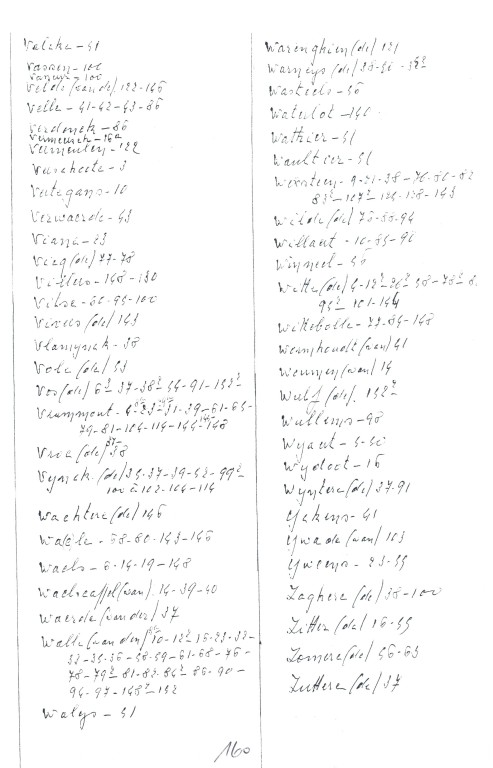 Valcke - 41
Vassen - 100
Velde (van de) 122-146
Velle - 41-42-43-86
Verdonck - 86
Vermeulen - 122
Verscheete - 3
Vertegans - 10
Verwaerde - 43
Viana - 23
Vieg (de) 77-78
Villers - 148-150
Vitse - 60-95-100
Vivers (de) 143
Vlamynck - 38
Vole (de) 53
Vos (de) 6² 37-38² 54-91-152²
Vrammont - 31-39-61-65-
79-81-104-114-144-148
Vrie (de) 38
Vynck (de) 35-37-39-52-99²-
100 à 102-104-114
Wachtere (de) 146
Waele - 58-80-143-146
Waels - 6-14-19-148
Waelscappel (van) 14-39-40
Waerde (van der) 37
Walle (van den) 10-12² 16-23-32-
32-35-36-58-59-61-68-76-
78-79² 81-82-84² 86-90-
94-97-148² 152
Walys - 51
Warenghien (de) 121
Warneys (de) 38-56-
Wasteels - 56
Waterlot - 140
Wathier - 51
Waultier - 51
Wexsteen - 9-21-38-76-80-82
83² - 107² 126-138-143
Wilde (de) 76-88-94
Willaert - 10-85-90
Winneel - 56
Witte (de) 4-12² 26² 58-78² 8.
95² 101-144
Wittebolle - 77-84-148
Wormhoudt (van) 41
Wulf (de). 152²
Wullems - 98
Wyaert - 5-50
Wydoot - 16
Wyntere (de) 37-91
Ykens - 41
Ywade (van) 103
Yweens - 23-55
Zaghere (de) 38-100
Zitter (de) 16-55
Zomere (de) 56-63
Zuttere (de) 37
160